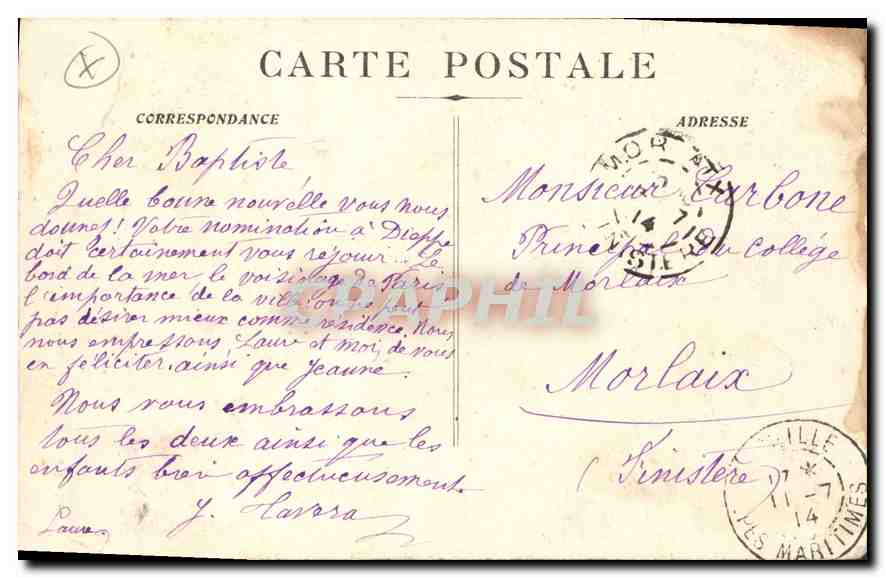 X
CARTE POSTALE
CORRESPONDANCE
ADRESSE
Cher Baptiste
Quelle bonne nouvelle vous nous
donnez! Votre nomination à Dieppe
doit certainement vous réjouir. Le
bord de la mer le voisinage de Paris
l'importance de la ville on ne peut
pas désirer mieux comme résidence. Nous
nous empressons Laure et moi, de vous
en féliciter, ainsi que Jeanne.
Nous vous embrassons
tous les deux ainsi que les
enfants bien affectueusement.
J. Tavera
Laure
Monsieur Carbone
Principal du collège
de Morlaix
Morlaix
(Finistère)
MOR
14 7
14
ISTERE
CPAPHIL
ILLE
11 -7
14
PES MARITIMES